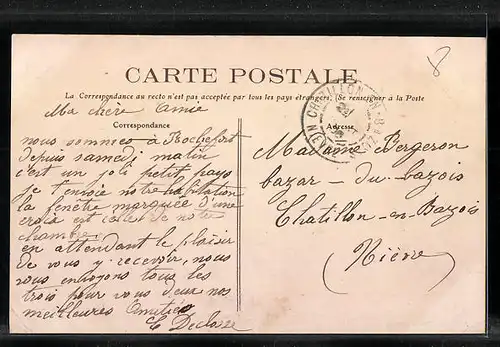 CARTE POSTALE
La Correspondance au recto n'est pas acceptée par tous les pays étrangers. (Se renseigner à la Poste
Ma chère Amie
Correspondance
nous sommes à Rochefort
depuis samedi matin
c'est un joli petit pays
je t'envoie notre habitation
la fenêtre marquée d'une
croix est celle de notre
chambre
en attendant le plaisir
de vous y recevoir, nous
vous envoyons tous les
trois pour vous deux nos
meilleures Amitiés
8
CHATILLON-EN-BAZOIS
NIEVRE
Adresse
Madame Bergeron
bazar - du - bazois
Chatillon - en - Bazois
(Nièvre)